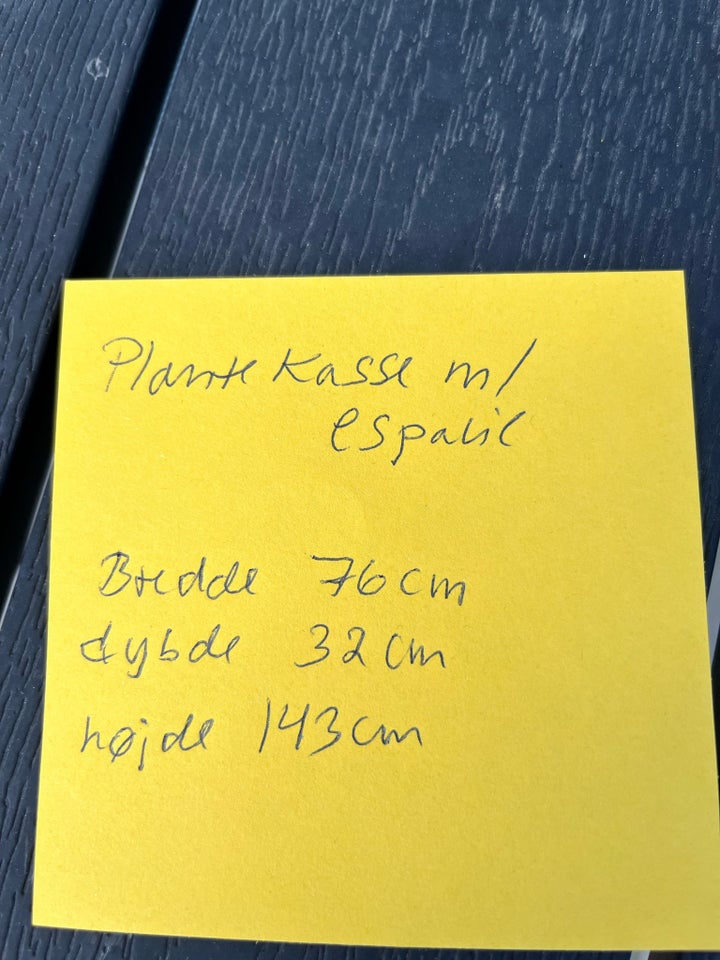 Plante Kasse m/
espalie
Bredde 76 cm
dybde 32 cm
højde 143 cm